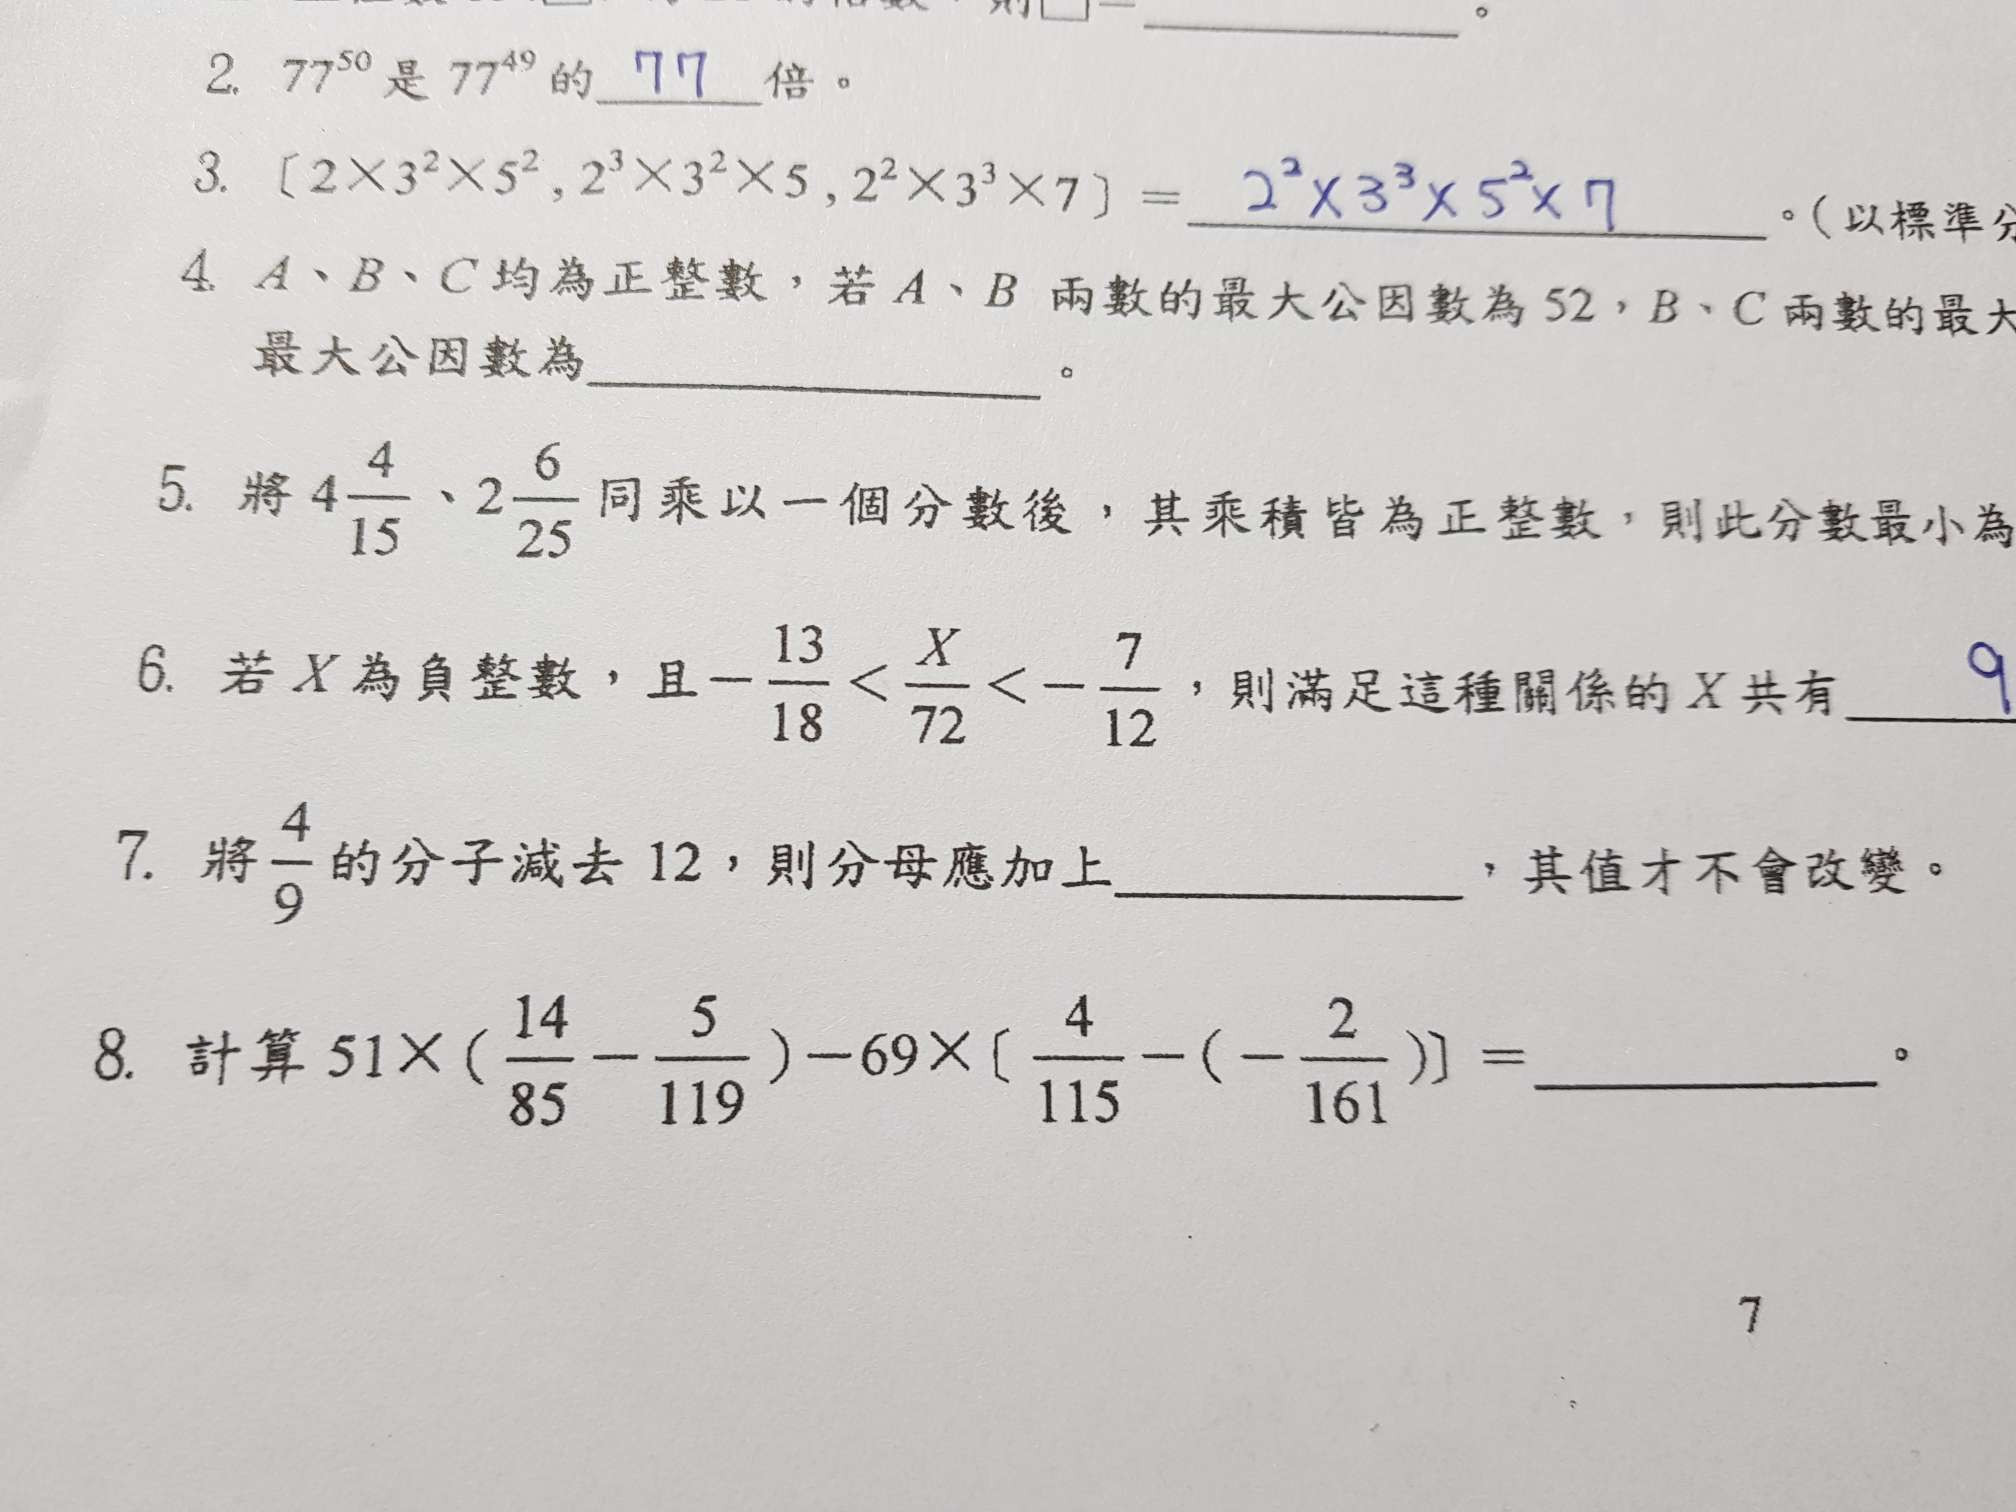 2. 77⁵⁰ 是 77⁴⁹ 的 77 倍。
3. 〔2×3²×5² , 2³×3²×5 , 2²×3³×7〕= 2²×3³×5²×7 。(以標準分
4. A、B、C 均為正整數，若 A、B 兩數的最大公因數為 52，B、C 兩數的最大
最大公因數為 。
5. 將 4 4/15、2 6/25 同乘以一個分數後，其乘積皆為正整數，則此分數最小為
6. 若 X 為負整數，且 −13/18 < X/72 < −7/12，則滿足這種關係的 X 共有 9
7. 將 4/9 的分子減去 12，則分母應加上 ，其值才不會改變。
8. 計算 51×(14/85 − 5/119)−69×〔4/115 −(−2/161)〕= 。
7